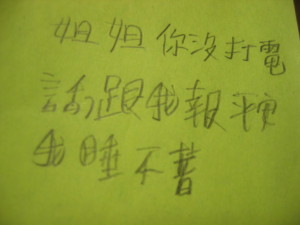 姐姐你沒打電
話跟我報平安
我睡不著